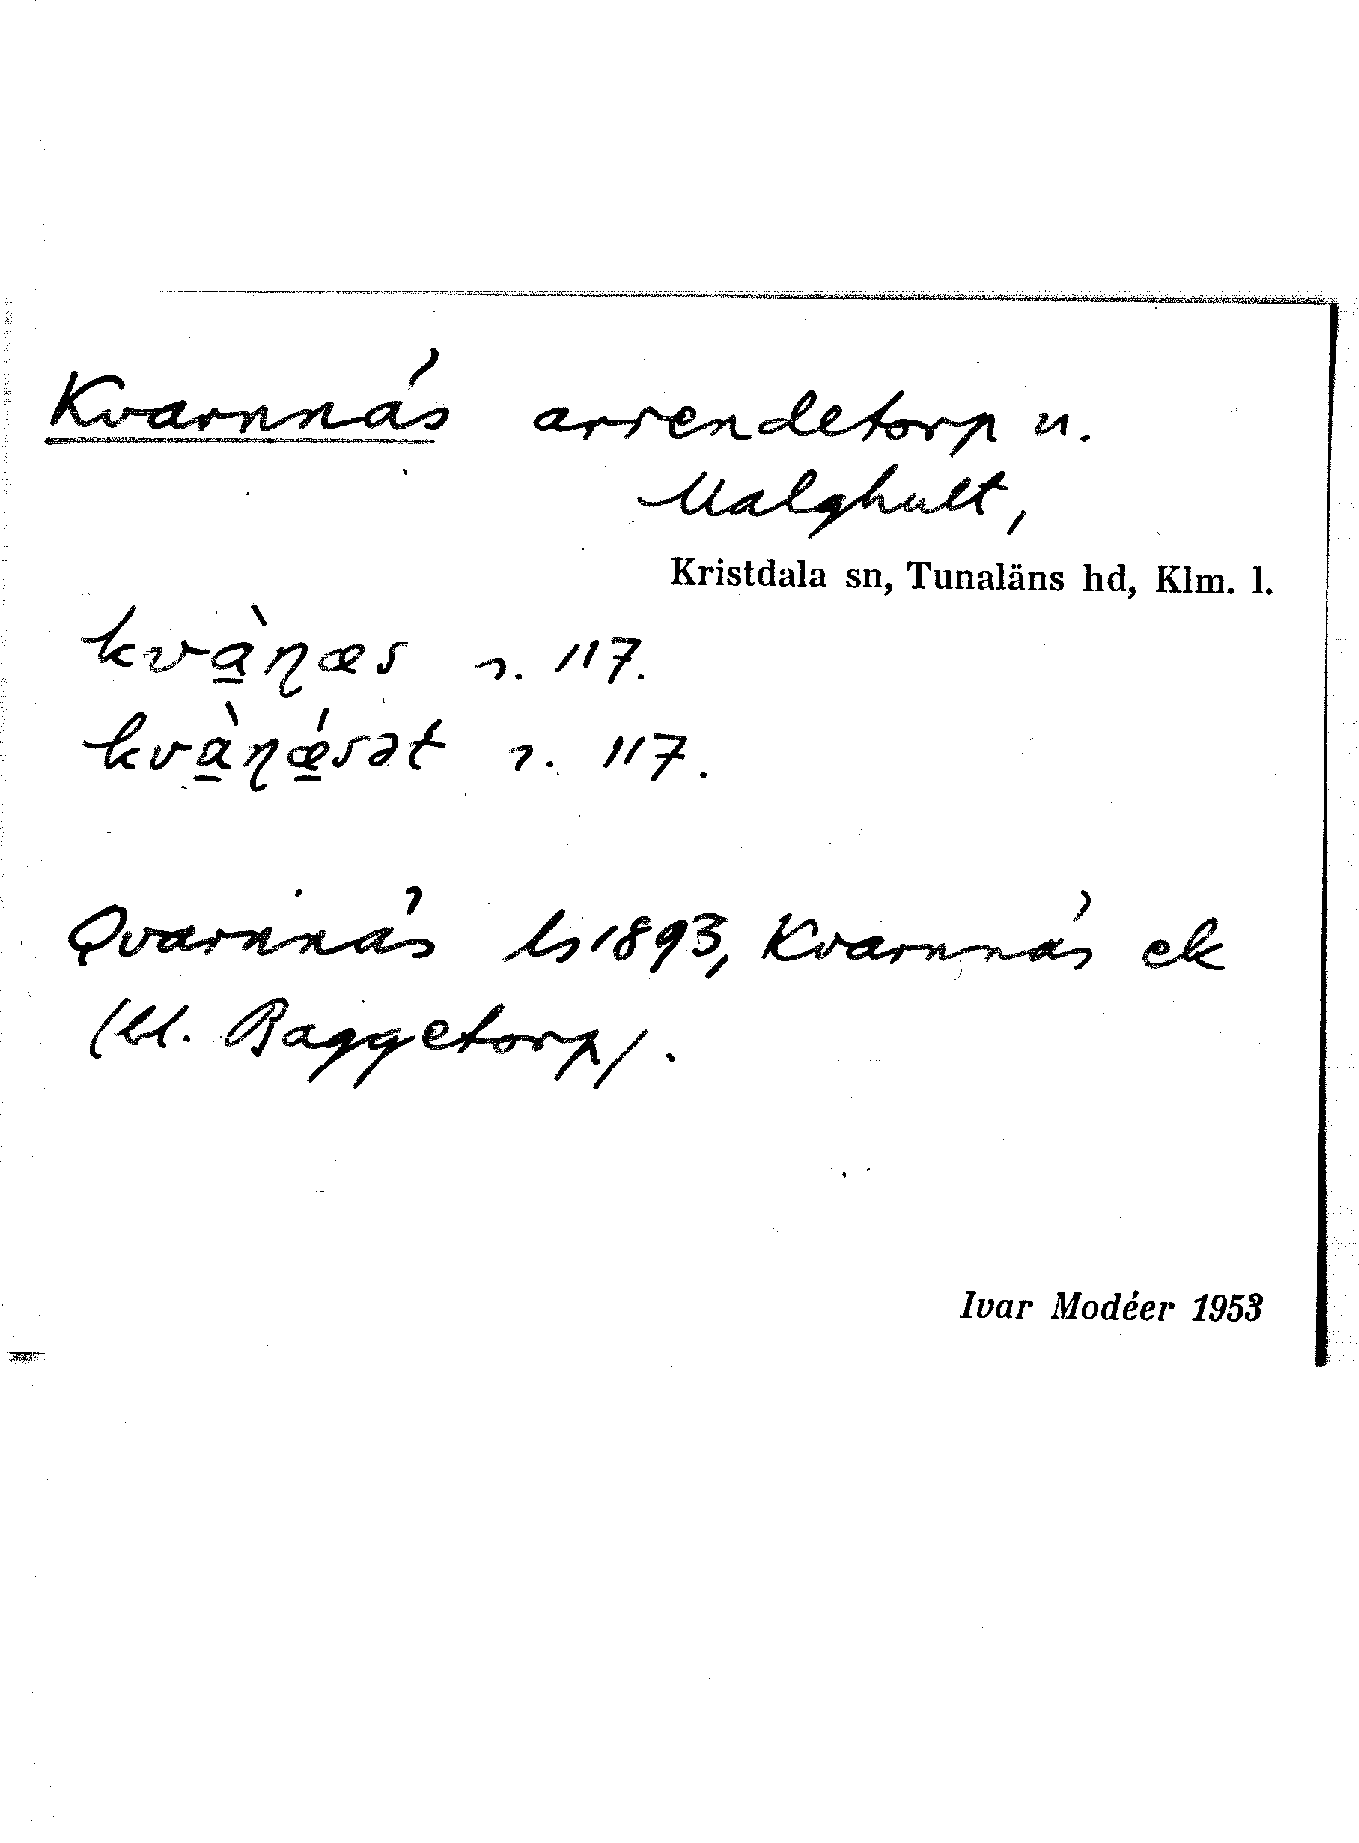 Kvarnnäs arrendetorp u.
Malghult,
Kristdala sn, Tunaläns hd, Klm. l.
kvàn̡æs n. 117.
kvàn̡ǽsət n. 117.
Qvarnnäs ls 1893, Kvarnnäs ek
(bl. Baggetorp).
Ivar Modéer 1953